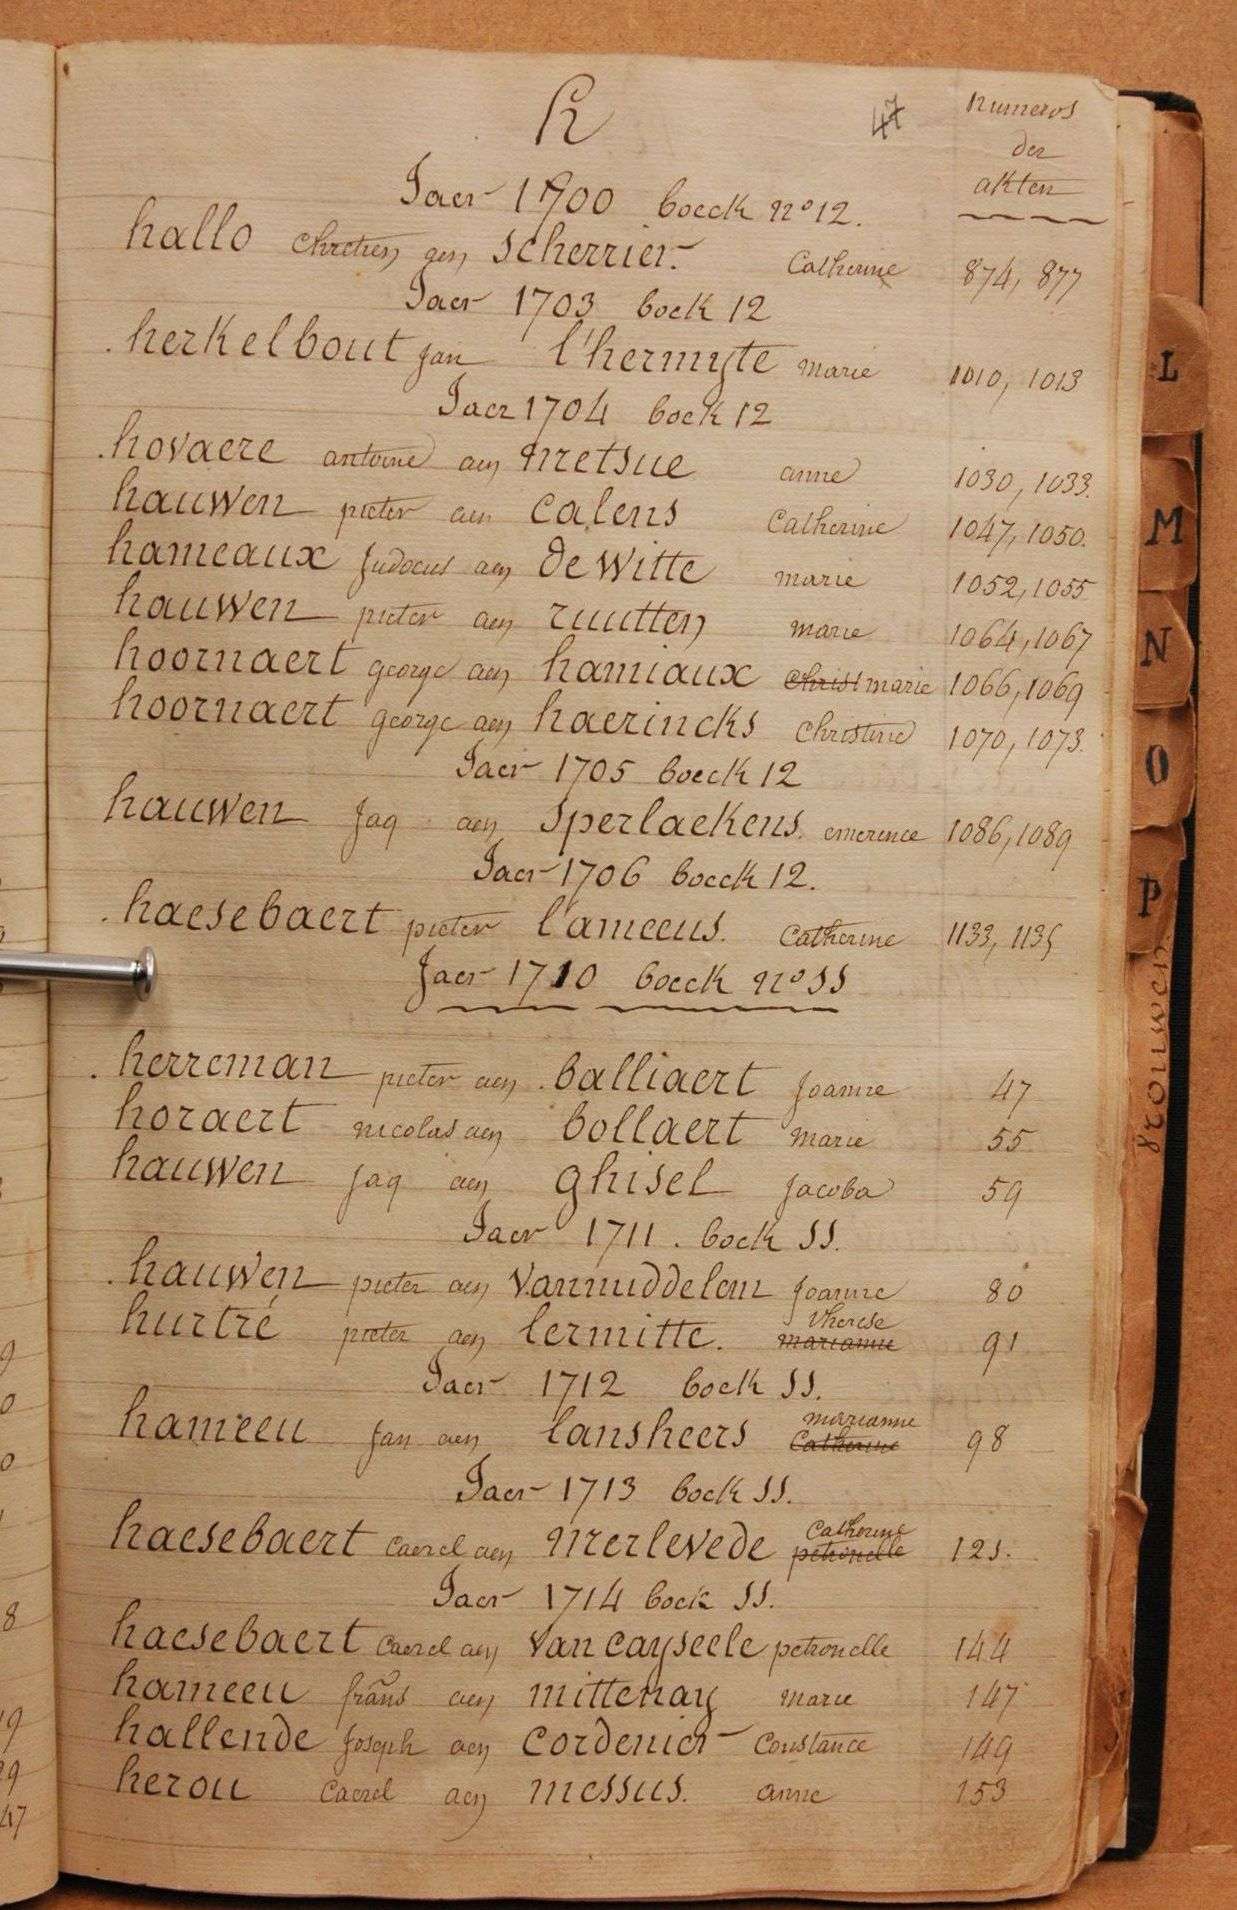 h 47
numeros
der
akten
Jaer 1700 boeck no 12.
hallo chretien aen scherrier. Catherine 874, 877
Jaer 1703 boek 12
herkelbout Jan l'hermyte marie 1010, 1013
Jaer 1704 boek 12
hovaere antoine aen metsue anne 1030, 1033.
hauwen pieter aen calens Catherine 1047, 1050.
hameaux Judocus aen de witte marie 1052, 1055
hauwen pieter aen ruutten marie 1064, 1067
hoornaert george aen hamiaux christ marie 1066, 1069
hoornaert george aen haerincks Christine 1070, 1073.
Jaer 1705 boeck 12
hauwen Jaq aen sperlaekens. emerence 1086, 1089
Jaer 1706 boeck 12.
haesebaert pieter l'ameeus. Catherine 1133, 1135
Jaer 1710 boeck no SS
herreman pieter aen balliaert Joanne 47
horaert nicolas aen bollaert marie 55
hauwen Jaq aen ghisel Jacoba 59
Jaer 1711. boek SS.
hauwen pieter aen vanmiddelem Joanne 80
therese
hurtré pieter aen lermitte. marianne 91
Jaer 1712 boek SS.
marianne
hameeu Jan aen lansheers Catherine 98
Jaer 1713 boek SS.
Catherine
haesebaert Caerel aen merlevede petronelle 121.
Jaer 1714 boek SS.
haesebaert Caerel aen van cayseele petronelle 144
hameeu frans aen mittenay marie 147
hallende Joseph aen cordenier Constance 149
herou Caerel aen messus. anne 153
L
M
N
O
P
vrouwen